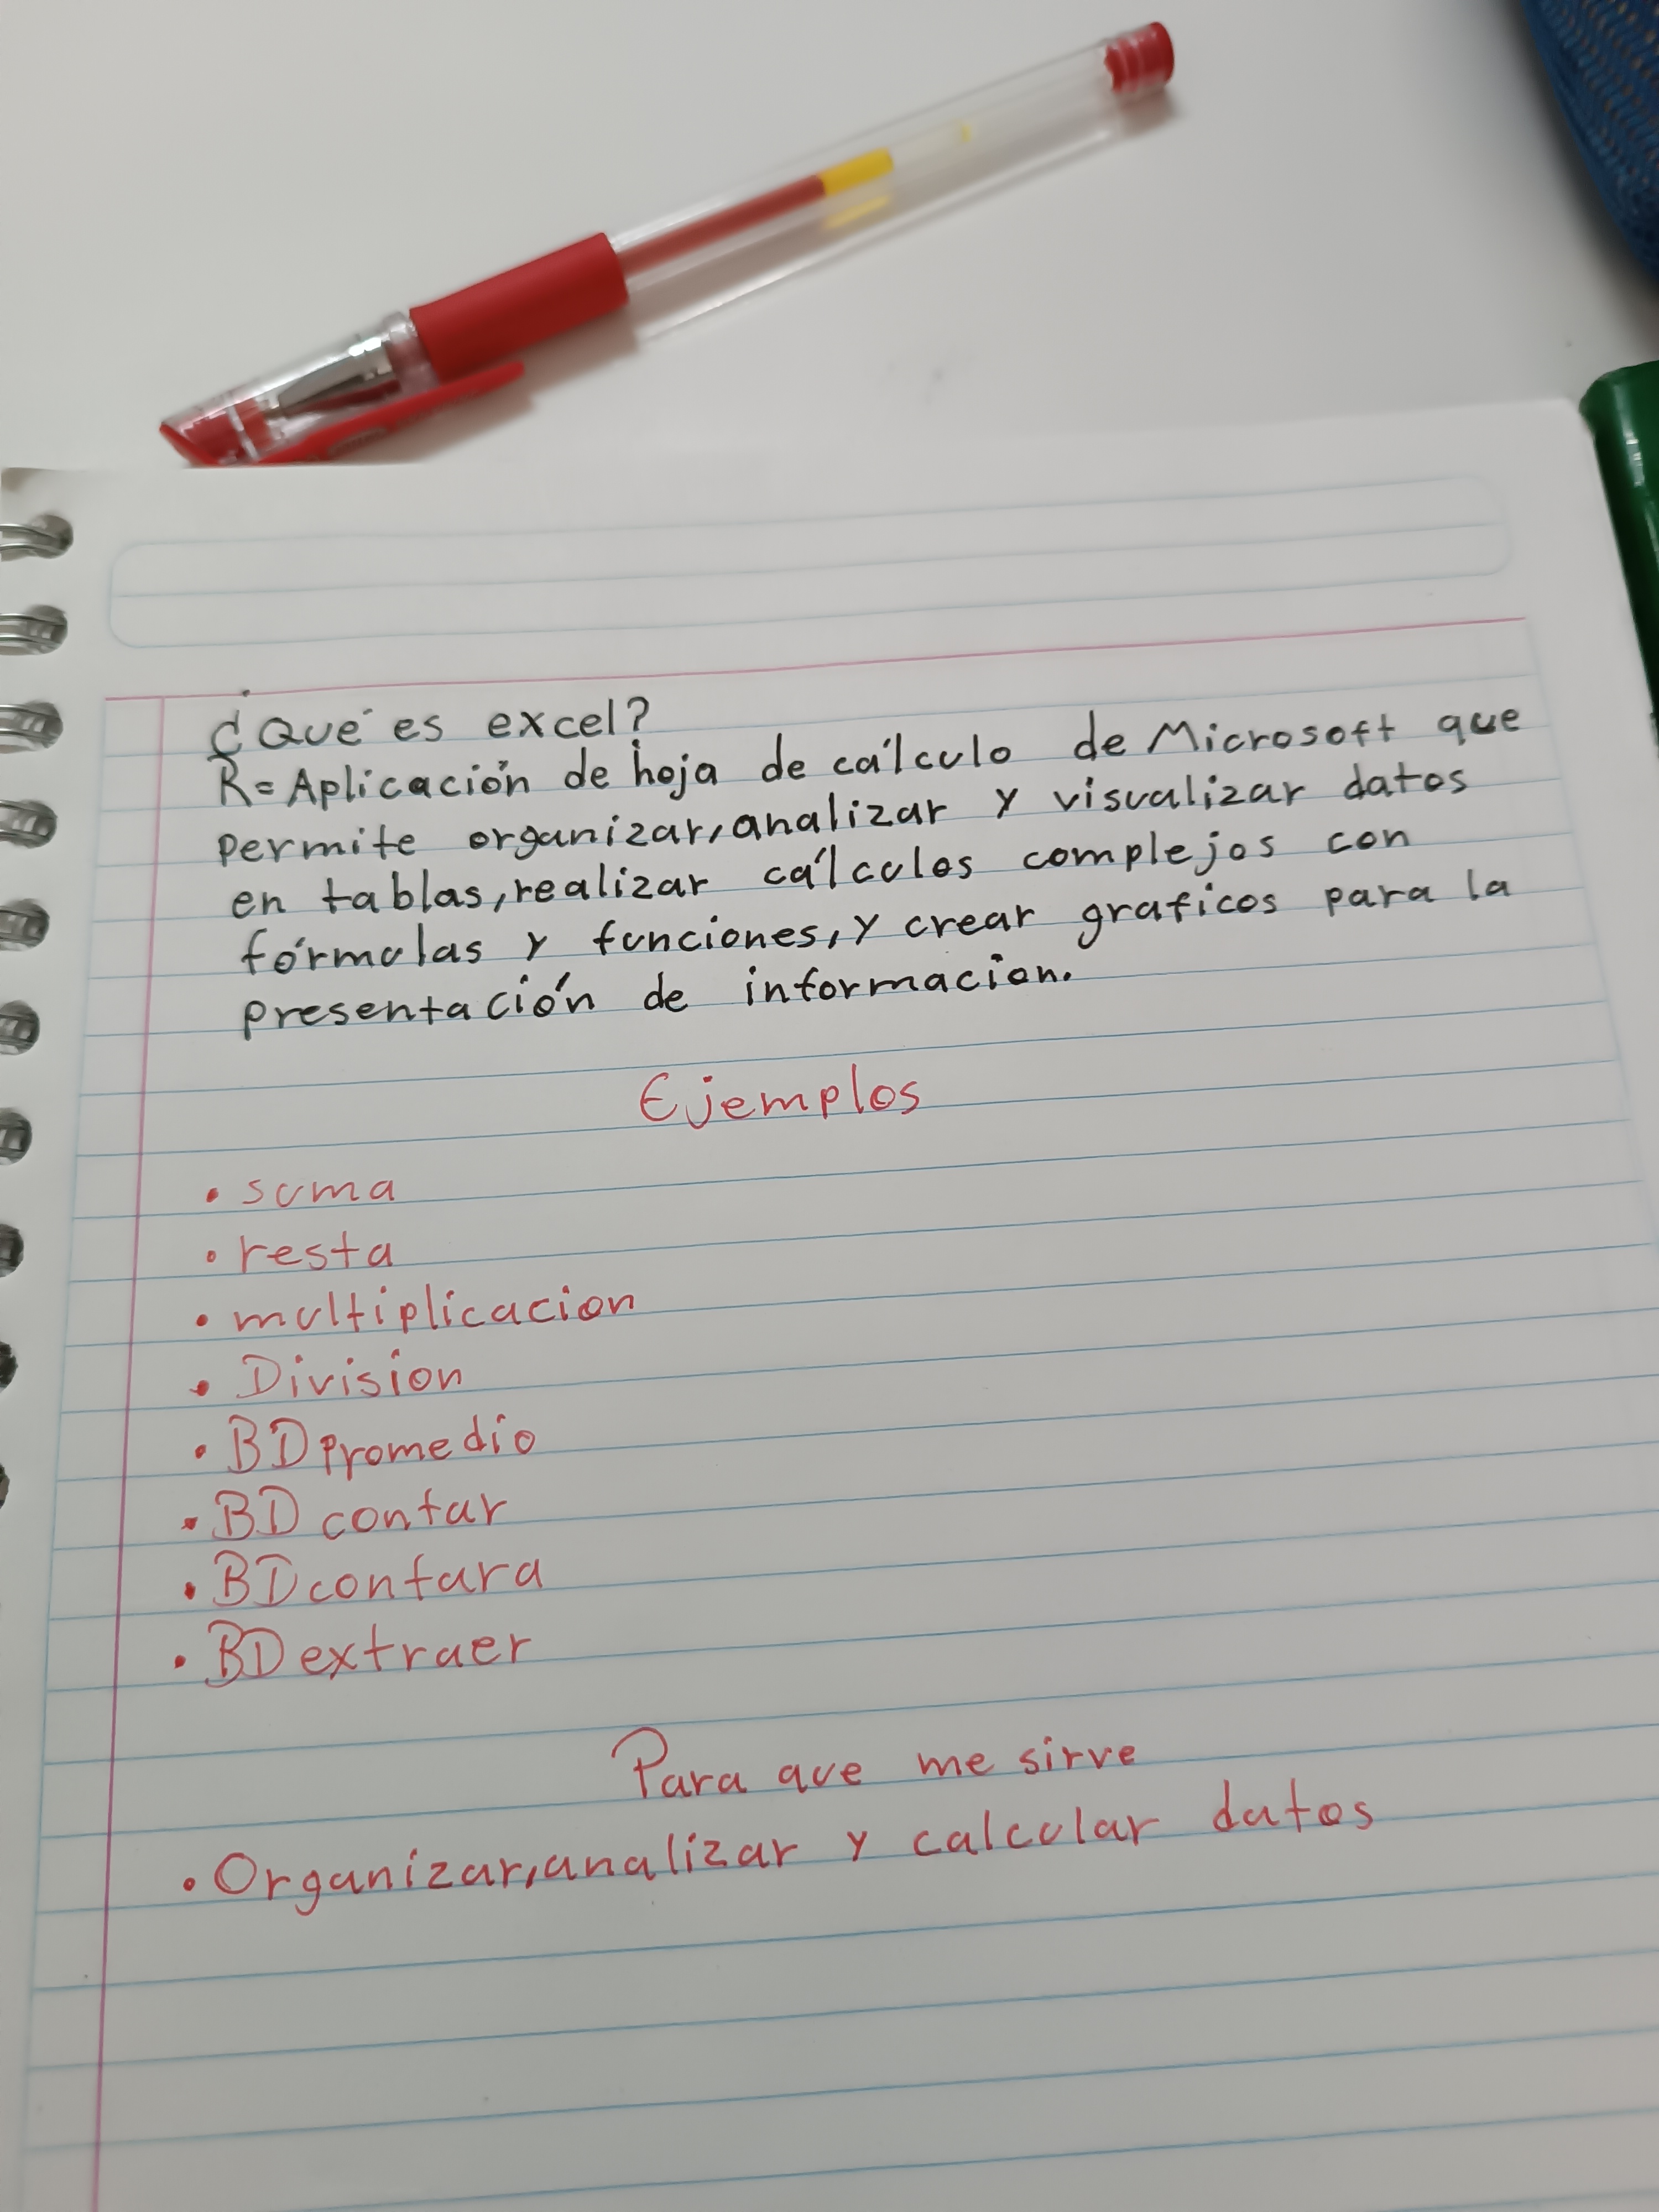 ¿Qué es excel?
R= Aplicación de hoja de cálculo de Microsoft que
permite organizar, analizar y visualizar datos
en tablas, realizar cálculos complejos con
fórmulas y funciones, y crear graficos para la
presentación de informacion.
Ejemplos
• suma
• resta
• multiplicacion
• Division
• BDpromedio
• BD contar
• BDcontara
• BDextraer
Para que me sirve
• Organizar, analizar y calcular datos